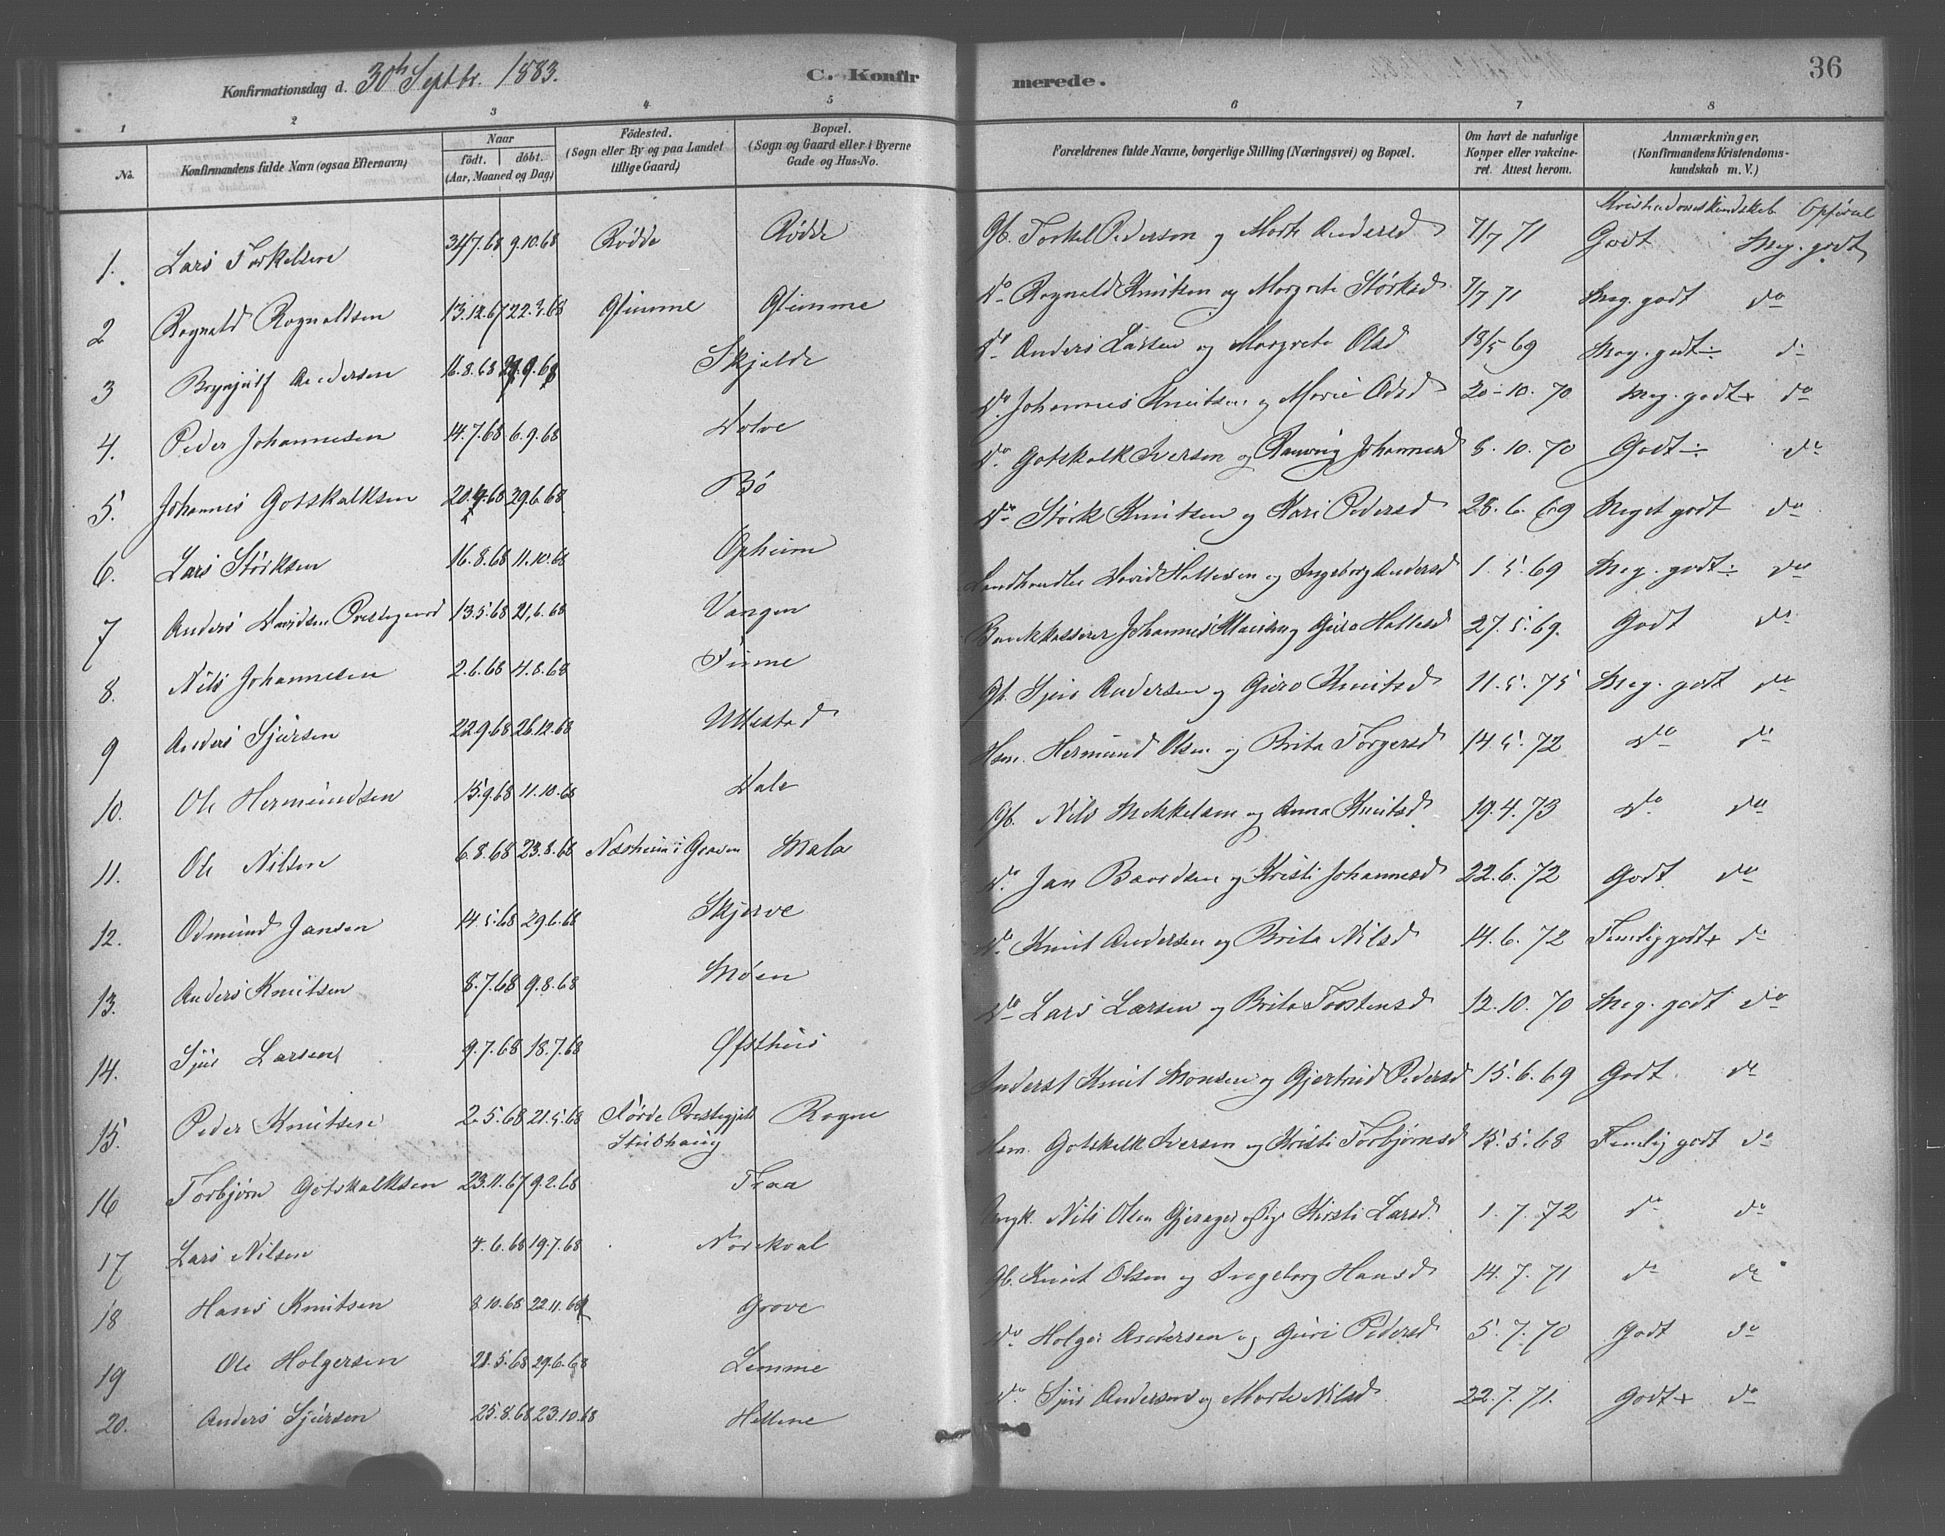 Konfirmationsdag d. 30th Septbr. 1883. C. Konfirmerede. 36
1 2 3 4 5 6 7 8
No. Konfirmandens fulde Navn (ogsaa Efternavn) Naar født. døbt. (Aar, Maaned og Dag) Födested. (Sogn eller By og paa Landet tillige Gaard) Bopæl. (Sogn og Gaard eller i Byerne Gade og Hus-No. Forældrenes fulde Navne, borgerlige Stilling (Næringsvei) og Bopæl. Om havt de naturlige Kopper eller vakcineret. Attest herom. Anmærkninger. (Konfirmandens Kristendomskundskab m. V.)
Kristendomskundskab Opførsel
1. Lars Torkelsen 7.68 9.10.68 Rødde Rødde Gb. Torkel Pedersen og Marte Andersd 7/7 71 Godt Meg. godt
2 Rognald Rognaldsen 13.12.67 22.3.68 Glimme Glimme Do Rognald Knutsen og Margrete Størksd 7/7 71 Meg. godt do
3 Brynjulf Andersen 16.8.68 9.68 Skjelde do Anders Larsen og Margrete Olsd 18/5 69 Meg. godt ÷ do
4. Peder Johannesen 14.7.68 6.9.68 Dolve Do Johannes Knutsen og Mari Odsd 20-10.70 Meg. godt + do
5. Johannes Gotskalksen 20.4.68 29.6.68 Bø Do Gotskalk Iversen og Ranveig Johannesd 8.10.70 Godt ÷ do
6. Lars Størksen 16.8.68 11.10.68 Opheim Do Størk Knutsen og Kari Pedersd 28.6.69 Meget godt do
7 Anders Davidsen Prestegaard 13.5.68 21.6.68 Vangen Landhandler David Hallesen og Ingeborg Andersd 1.5.69 Meg. godt ÷ do
8. Nils Johannesen 2.6.68 4.8.68 Finne Bankkasserer Johannes og Guro Hallesd 27.5.69. Godt do
9 Anders Sjursen 22.9.68 26.12.68 Ullestad Gb. Sjur Andersen og Guro Knutsd 11.5.75 Meg. godt do
10. Ole Hermundsen 15.9.68 11.10.68 Dale Hsm. Hermund Olsen og Brita Torgersd 14.5.72 Do do
11. Ole Nilsen 6.8.68 23.8.68 Næsheim i Graven Mala Gb. Nils Mikkelsen og Anna Knutsd 19.4.73 Do do
12. Odmund Jansen 14.5.68 29.6.68 Skjerve Do Jan Baardsen og Kristi Johannesd 22.6.72 Godt do
13. Anders Knutsen 8.7.68 9.8.68 Møen Do Knut Andersen og Brita Nilsd 14.6.72 Temlig godt + do
14. Sjur Larsen 9.7.68 18.7.68 Øfsthus Do Lars Larsen og Brita Torstensd 12.10.70 Meg. godt do
15. Peder Knutsen 2.5.68 21.5.68 Førde Prestegjeld Rogne Inderst Knut Monsen og Gjertrud Pedersd 15.6.69 Godt do
Stubhaug
16 Torbjørn Gotskalksen 23.11.67 9.2.68 Traa Hsm. Gotskalk Iversen og Kristi Torbjørnsd 15.5.68 Temlig godt do
17 Lars Nilsen 4.6.68 19.7.68 Norekval Nils Olsen Gjerager og Kirsti Larsd. 1.7.72 do do
18 Hans Knutsen 8.10.68 22.11.68 Grove Gb. Knut Olsen og Ingeborg Hansd 14.7.71 do do
19 Ole Holgersen 21.5.68 29.6.68 Lemme Do Holger Andersen og Guri Pedersd 5.7.70 Godt do
20. Anders Sjursen 25.8.68 23.10.68 Hellene Do Sjur Andersen og Marte Nilsd 22.7.71. Godt + do